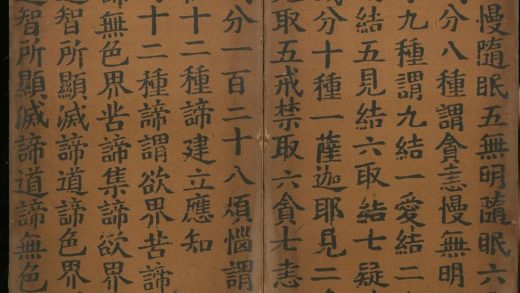 慢隨眠五無明隨眠六
分八種謂貪恚慢無明
九種謂九結一愛結二
結五見結六取結七疑
分十種一薩迦耶見二
見取五戒禁取六貪七恚
分一百二十八煩惱謂
十二種諦建立應知
十二種諦謂欲界苦諦
諦無色界苦諦集諦欲界
智所顯滅諦道諦色界
智所顯滅諦道諦無色